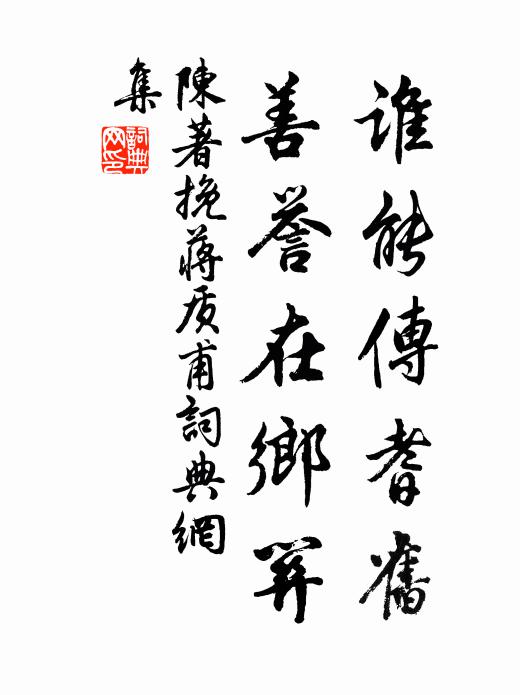 誰能傳耆舊
善譽在鄉
陳著挽蔣质甫詞典網
集
詞典
网印